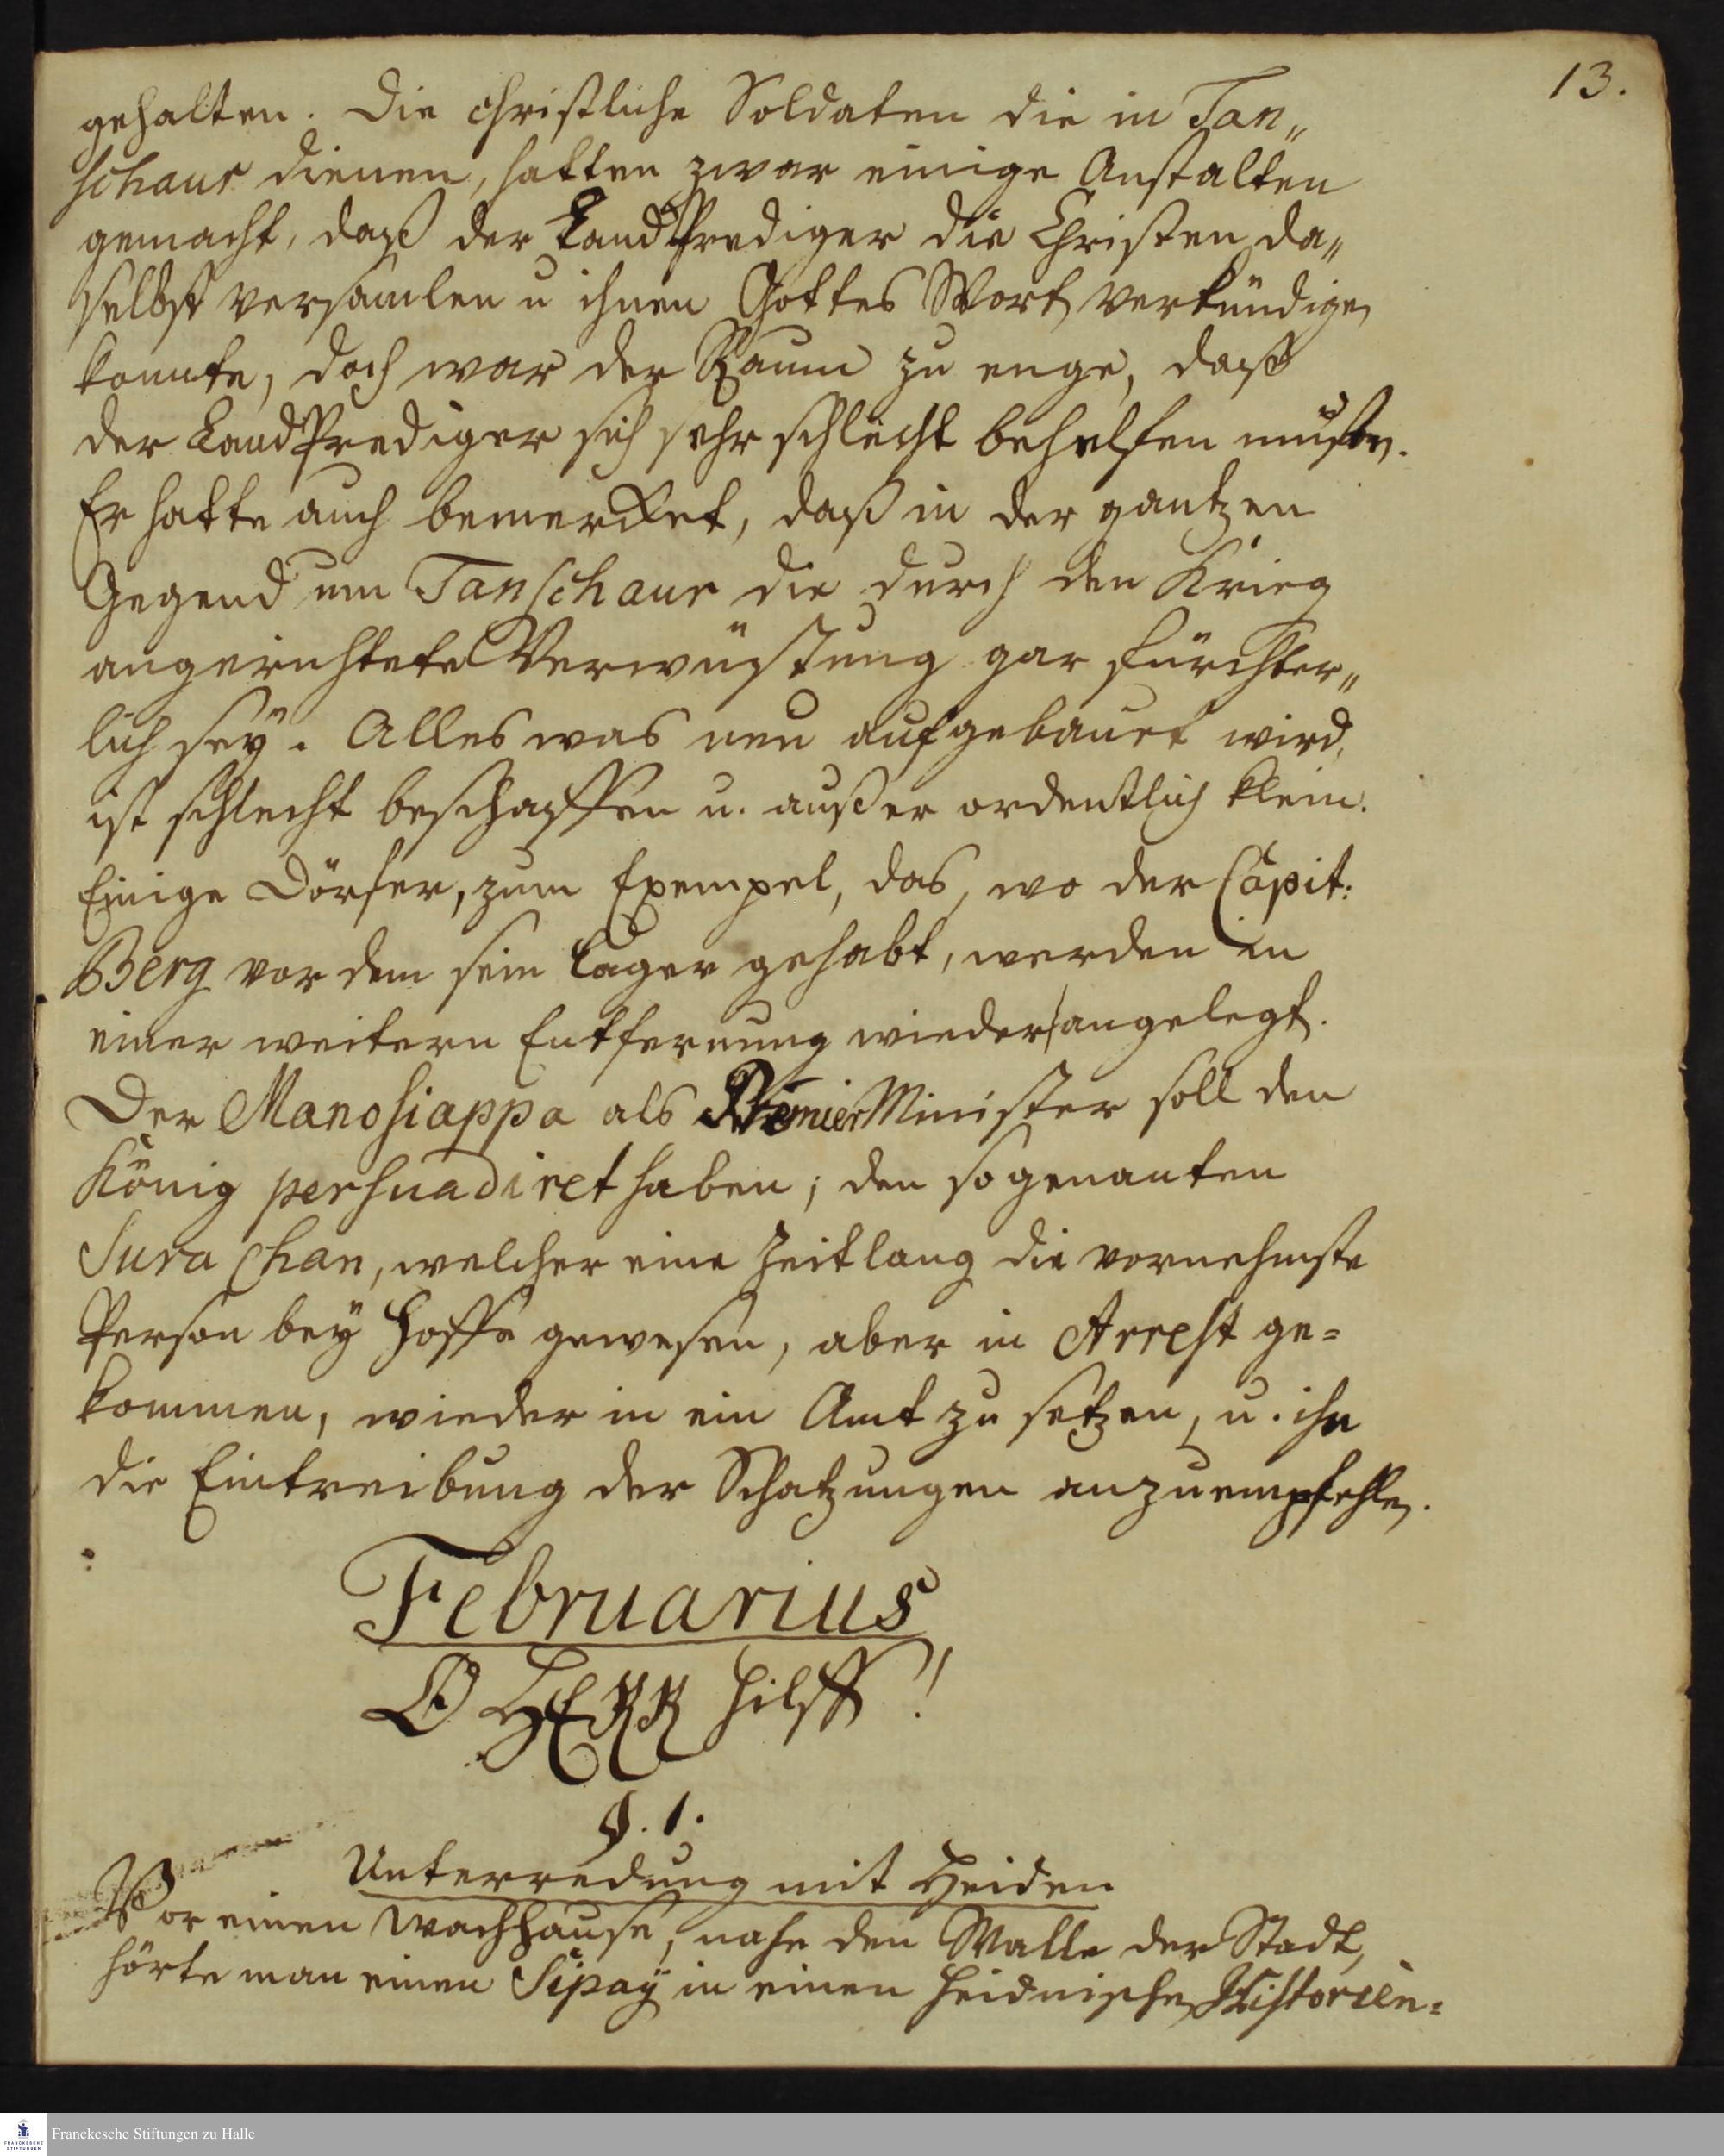 13.
gehalten. Die christliche Soldaten die in Tan„
schaur dienen, hatten zwar einige Anstalten
gemacht, daß der LandPrediger die Christen da„
selbst versamlen u ihnen Gottes Wort verkündigen
konnte, doch war der Raum zu enge, daß
der LandPrediger sich sehr schlecht behelfen muste.
Er hatte auch bemercket, daß in der gantzen
Gegend um Tanschaur die durch den Krieg
angerichtete Verwüstung gar fürchter„
lich seÿ. Alles was neu aufgebauet wird,
ist schlecht beschaffen u. außer ordentlich klein.
Einige Dörfer, zum Exempel, das, wo der Capit:
Berg vor dem sein Lager gehabt, werden in
einer weitern Entfernung wieder angelegt.
Der Manosiappa als PremierMinister soll den
König persuadiret haben; den so genanten
Sura Chan, welcher eine Zeitlang die vornehmste
Person beÿ Hoffe gewesen, aber in Arrest ge=
kommen, wieder in ein Amt zu setzen, u. ihn
die Eintreibung der Schatzungen anzuempfehlen.
Februarius
O HERR hilff!
§. 1.
Unterredung mit Heiden
Vor einen Wachhause, nahe den Walle der Stadt,
hörte man einen Sipaÿ in einen heidnischen Historien=
Franckesche Stiftungen zu Halle
FRANCKESCHE
STIFTUNGEN